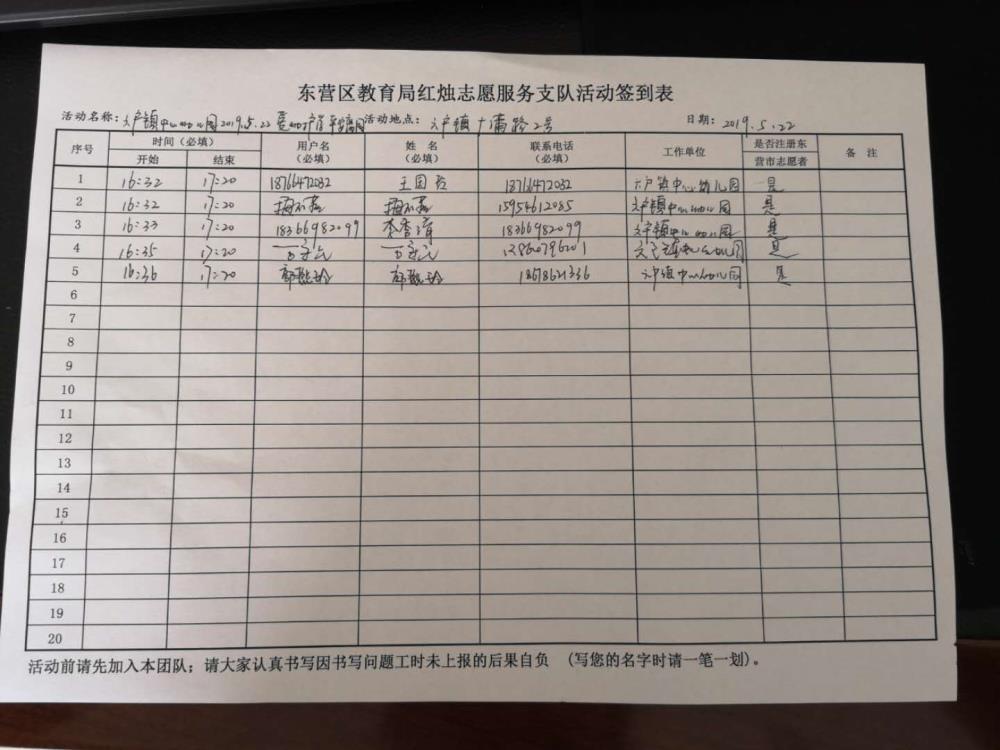 东营区教育局红烛志愿服务支队活动签到表
活动名称: 六户镇中心幼儿园2019.5.22 平安离园 活动地点: 六户镇广蒲路2号 日期: 2019.5.22
序号 时间（必填） 用户名（必填） 姓名（必填） 联系电话（必填） 工作单位 是否注册东营市志愿者 备注
开始 结束
1 16:32 17:20 18766472032 王国 18766472032 六户镇中心幼儿园 是
2 16:32 17:20 15954612035 六户镇中心幼儿园 是
3 16:33 17:20 18366982099 李香 18366982099 六户镇中心幼儿园 是
4 16:35 17:20 六户镇中心幼儿园 是
5 16:36 17:20 18678621336 六户镇中心幼儿园 是
6
7
8
9
10
11
12
13
14
15
16
17
18
19
20
活动前请先加入本团队；请大家认真书写因书写问题工时未上报的后果自负 （写您的名字时请一笔一划）。